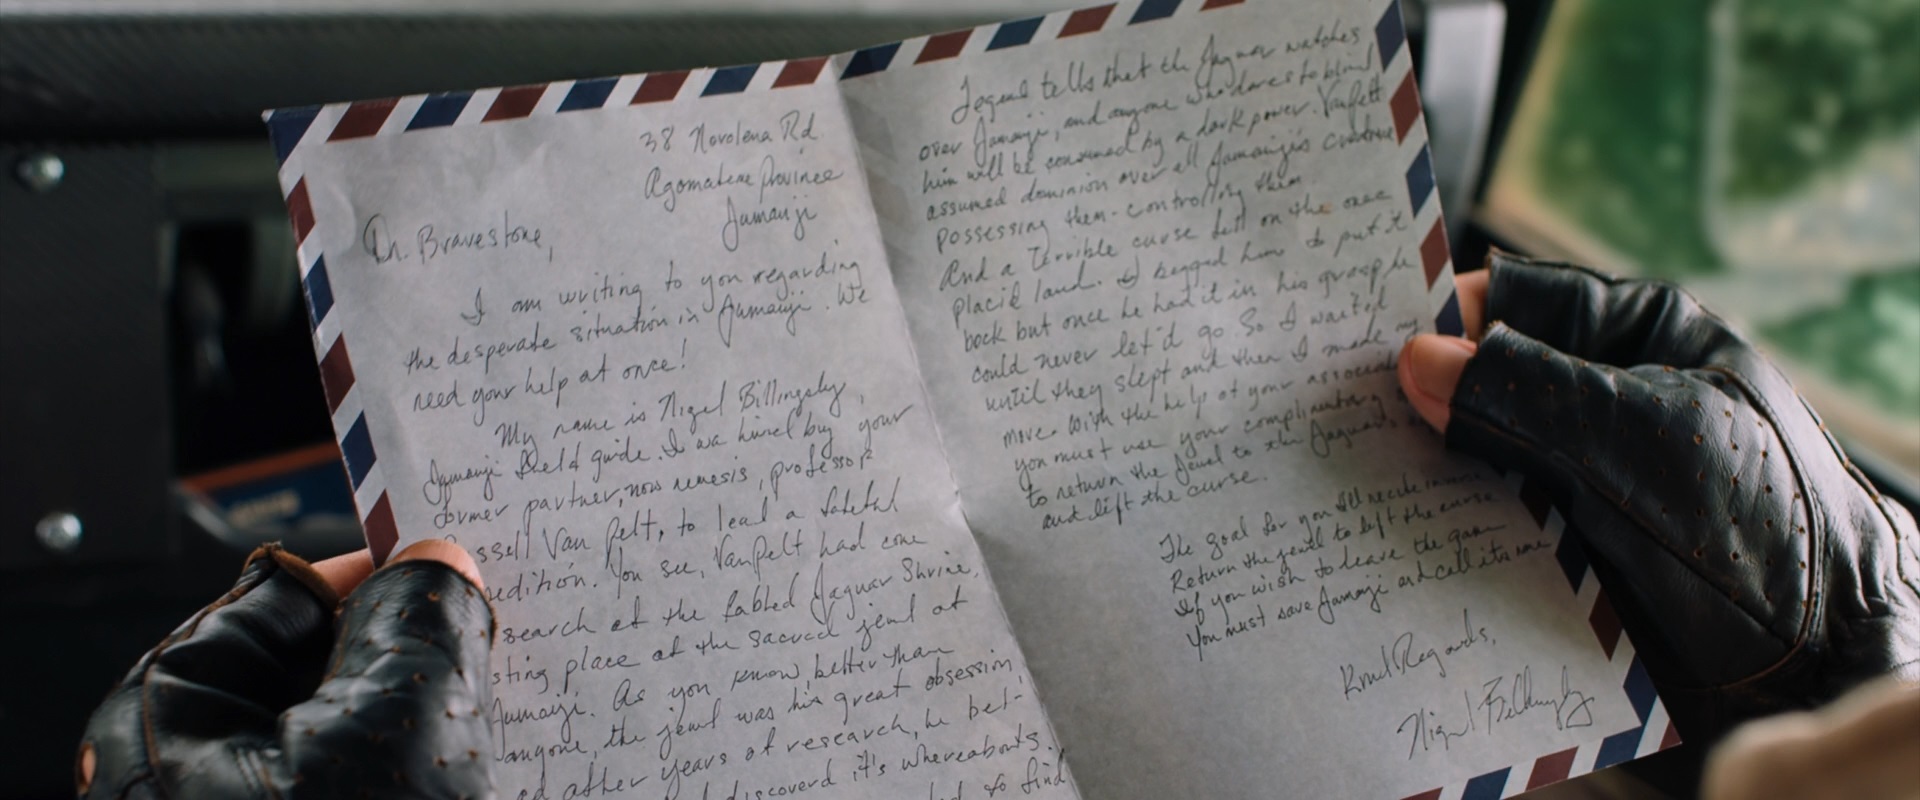 38 Novolena Rd.
Agomatene Province
Jumanji
Dr. Bravestone,
I am writing to you regarding
the desperate situation in Jumanji. We
need your help at once!
My name is Nigel Billingsley,
Jumanji field guide. I wa hired buy your
former partner, now nemesis, professor
ssell Van Pelt, to lead a fateful
edition. You see, VanPelt had come
search of the fabled Jaguar Shrine,
sting place of the sacred jewel of
Jumanji. As you know, better than
anyone, the jewel was his great obsession,
ed after years of research, he bel-
discoverd it's whereabouts.
to find
Legend tells that the Jaguar watches
over Jumanji, and anyone who dares to blind
him will be consumed by a dark power. VanPelt
assumed dominion over all Jumanji's creature
possessing them - controlling them
And a Terrible curse fell on the once
placid land. I begged him to put it
back but once he had it in his grasp he
could never let'd go. So I waited
until they slept and then I made my
move. With the help of your associat
you must use your complimentary
to return the Jewel to the Jaguar's
and lift the curse.
The goal for you I'll recite in
Return the jewel to lift the curse
If you wish to leave the gam
You must save Jumanji and call its name
Kind Regards,
Nigel Billingsley